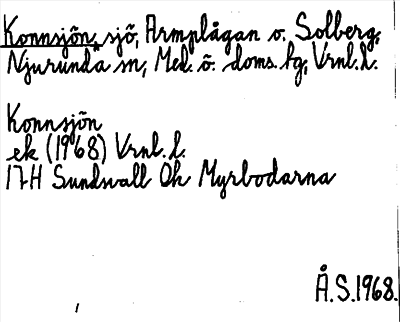 Konnsjön, sjö, Armplågan o. Solberg,
Njurunda sn, Med. ö. doms. hg, Vrnl. l.
Konnsjön
ek (1968) Vrnl. l.
17H Sundsvall Ok Myrbodarna
Å.S.1968.